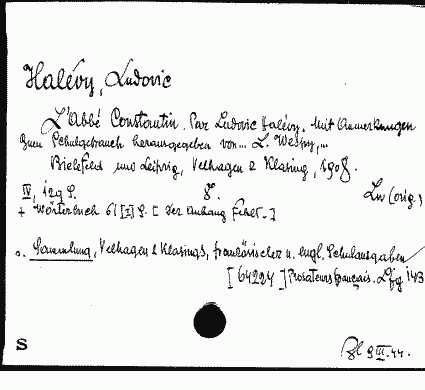 Halévy, Ludovic
L'Abbé Constantin. Par Ludovic Halévy. Mit Anmerkungen
zum Schulgebrauch herausgegeben von... L. Wespy,...
Bielefeld und Leipzig, Velhagen & Klasing, 1908.
IV, 129 S. 8°. Lw (orig.)
+ Wörterbuch 61 [1] S. [Der Anhang fehlt.]
a. Sammlung, Velhagen & Klasings, französischer u. engl. Schulausgaben
[64224] Prosateurs français. Lfg 143
S
9.III.44.